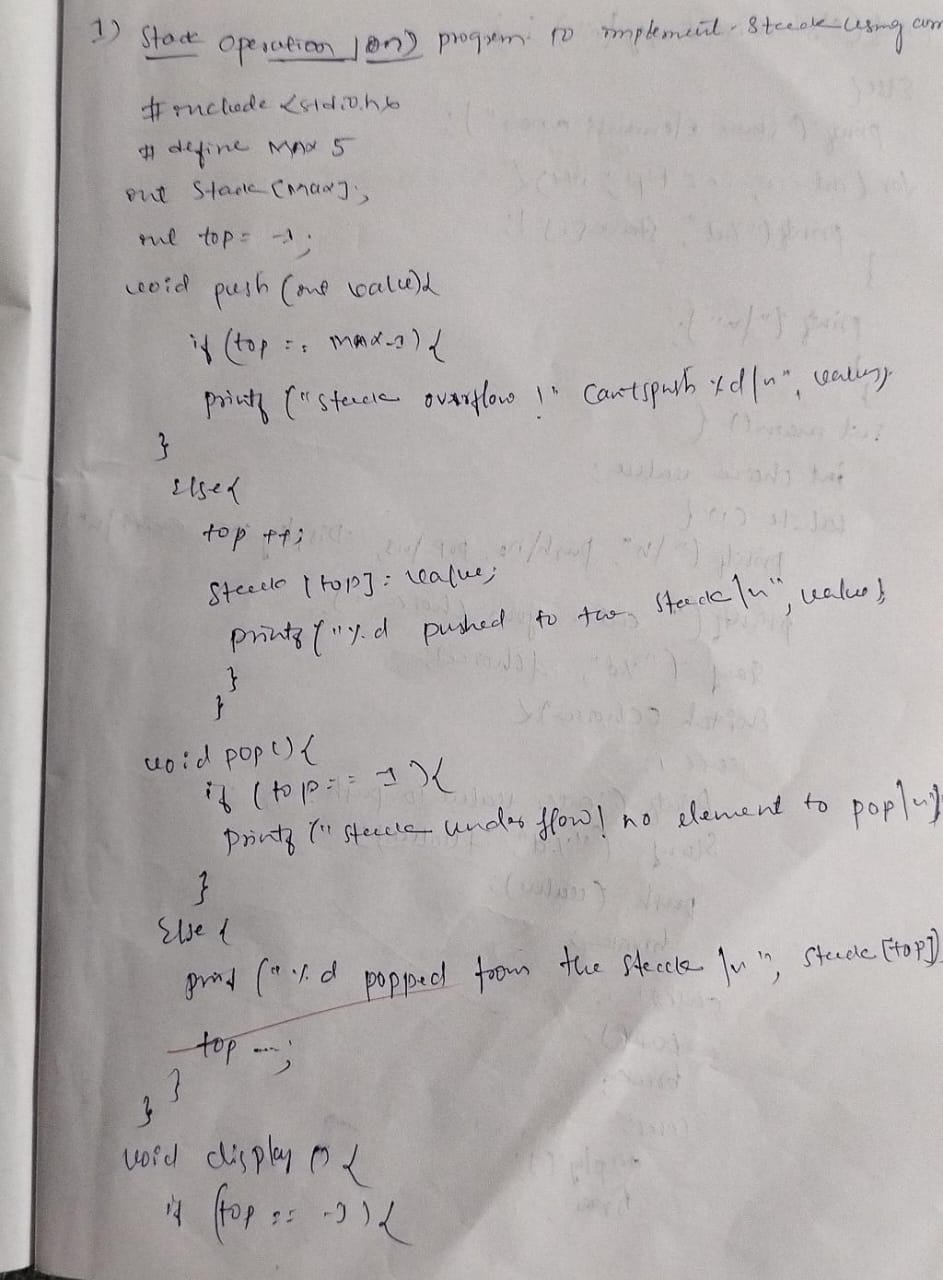 1) Stack operation (or) program to implement stack using arr
#include <stdio.h>
# define MAX 5
int stack [max];
int top = -1;
void push (int value){
if (top == max-1){
printf ("stack overflow !" Can't push %d \n", value);
}
else{
top ++;
stack [top] = value;
printf ("%d pushed to the stack \n", value);
}
}
void pop () {
if (top == -1){
printf ("stack under flow! no element to pop \n");
}
Else {
print ("%d popped from the stack \n", stack [top])
top --;
}
}
void display () {
if (top == -1){